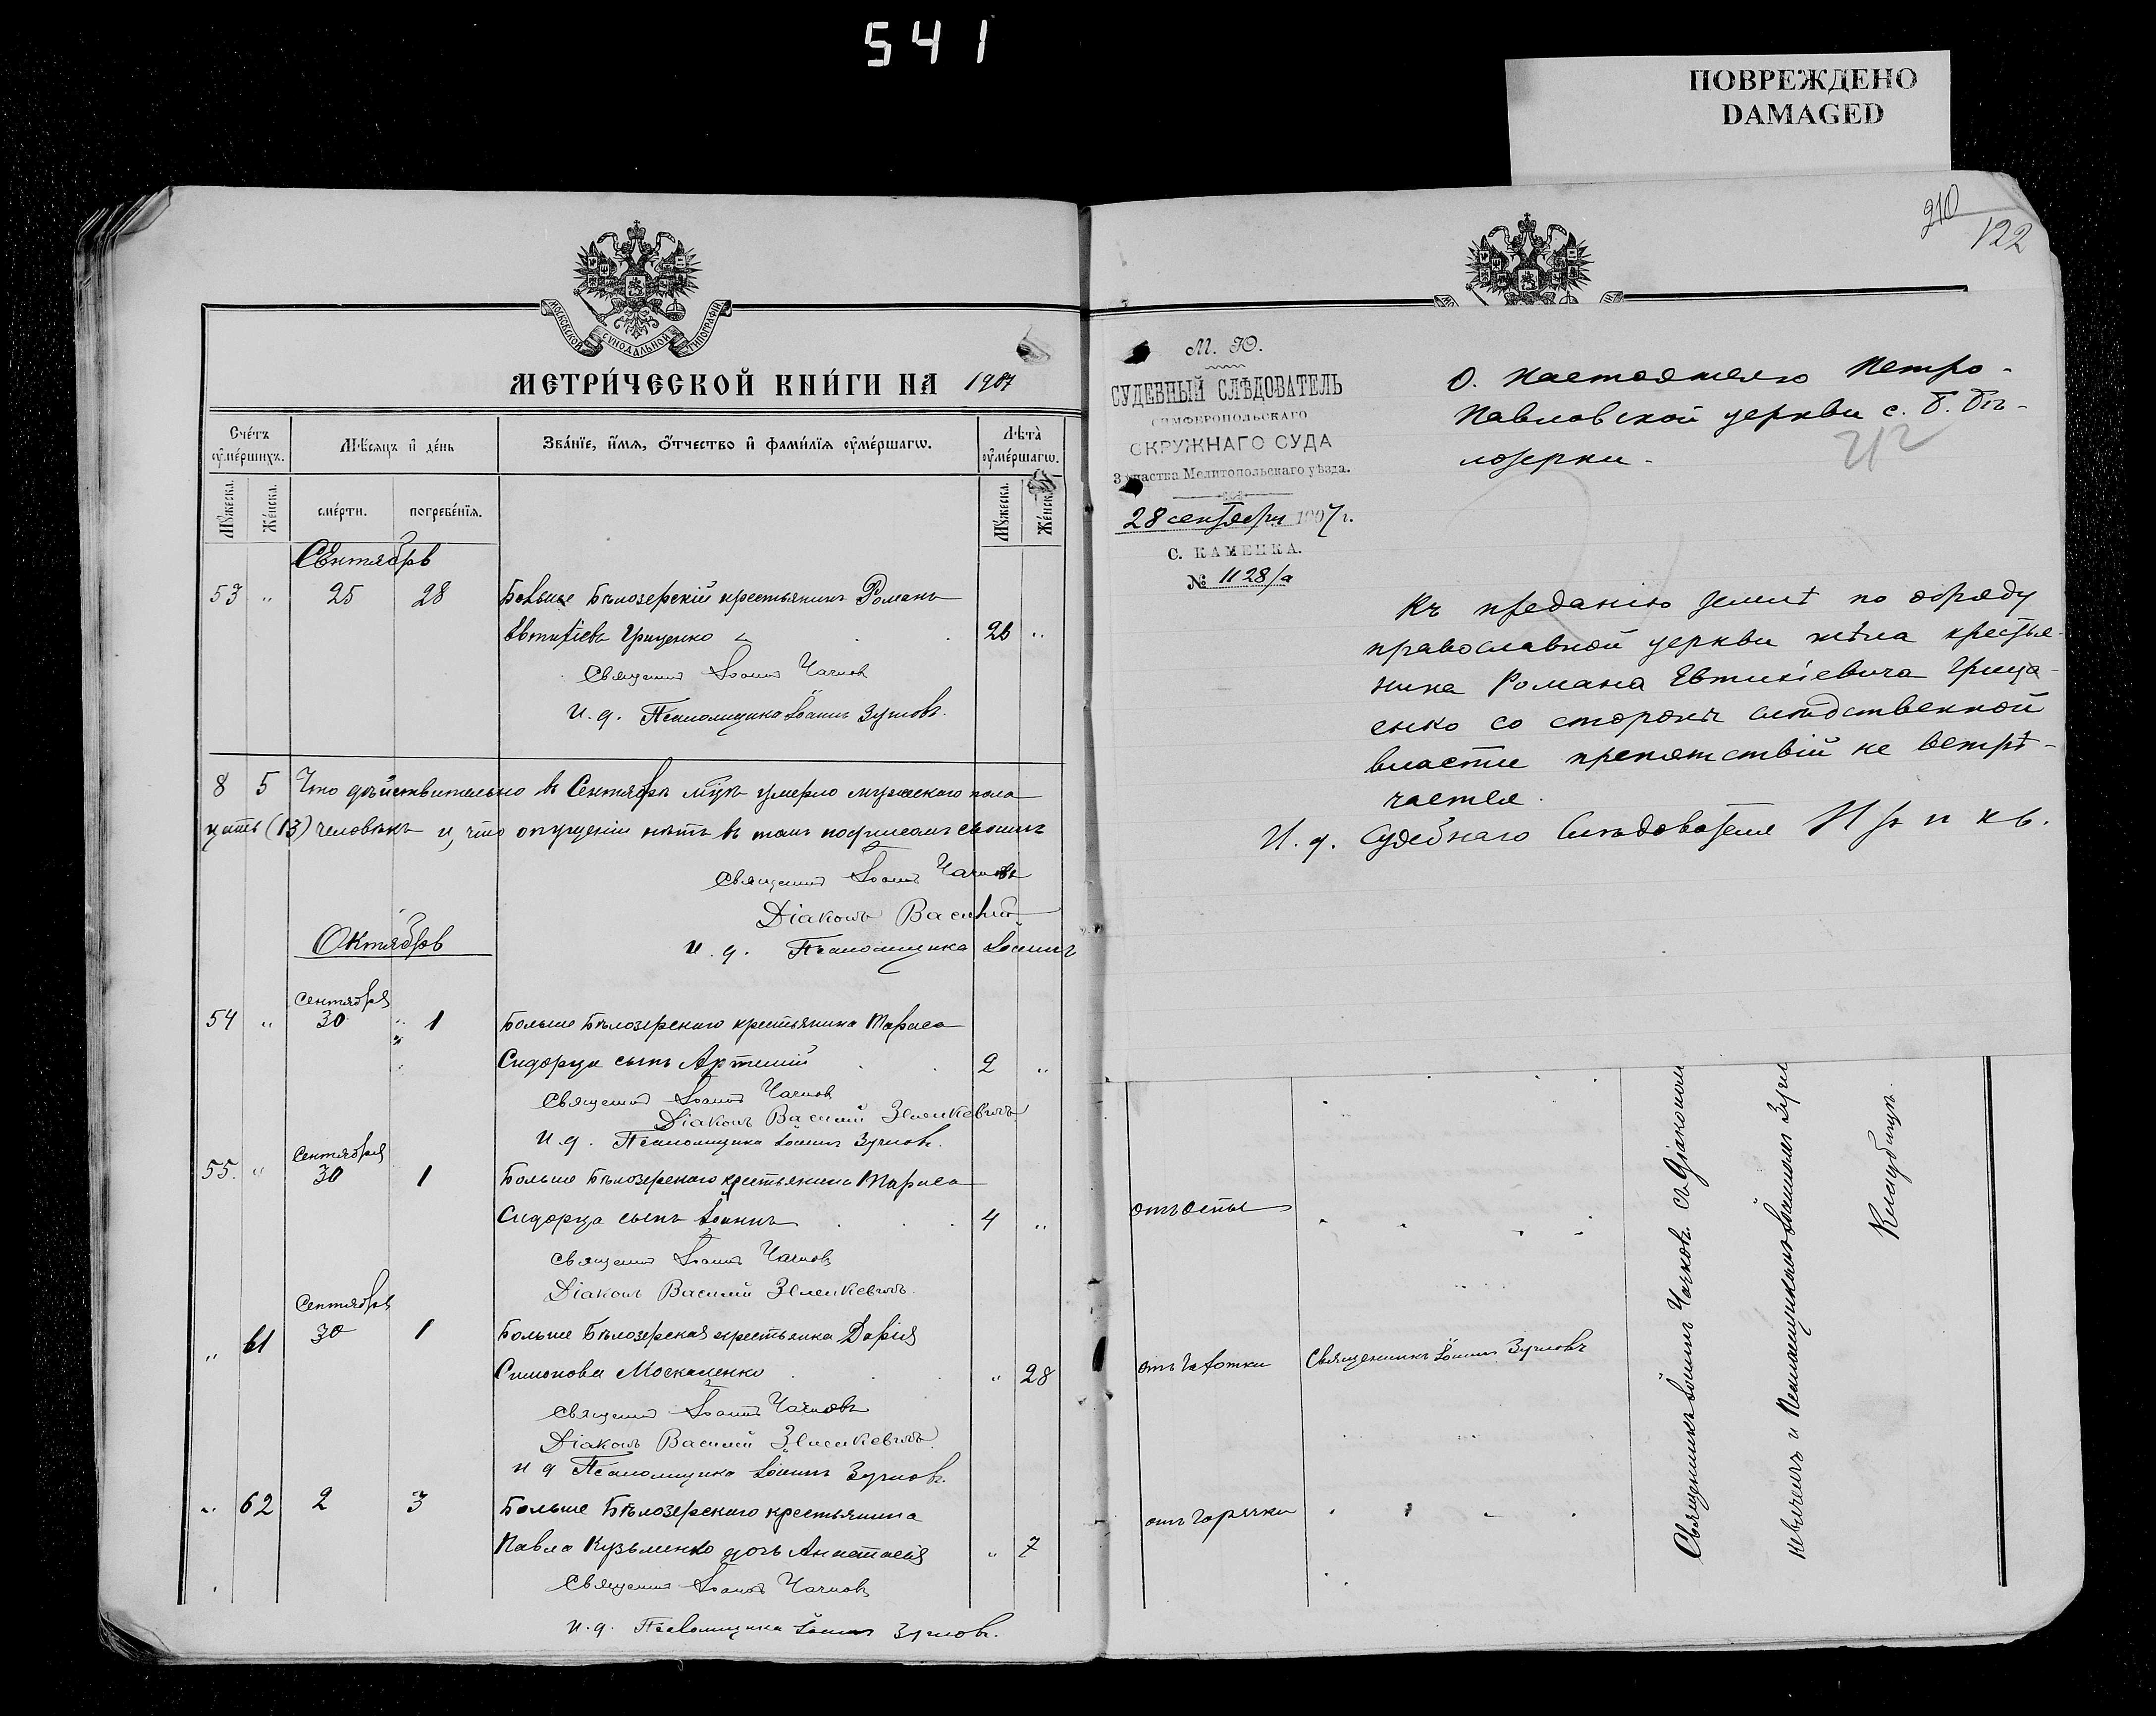 541
ПОВРЕЖДЕНО
DAMAGED
МОСКОВСКОЙ СУНОДАЛЬНОЙ ТИПОГРАФІИ
МЕТРИ́ЧЕСКОЙ КНИ́ГИ НА 1907
Сче́тъ ᲂу҆ме́ршихъ.
Мѣ́сѧцъ и҆ де́нь
Зва́нїе, и҆́мѧ, ѻ҆́тчество и҆ фами́лїѧ ᲂу҆ме́ршагѡ.
Лѣта̀ ᲂу҆ме́ршагѡ.
Мꙋ́жеска.
Же́нска.
сме́рти.
погребе́нїѧ.
Мꙋ́жеска.
Же́нска.
Сентябрь
53 " 25 28 Больше Бѣлозерскій крестьянинъ Романъ
Евтихіевъ Гриценко 26 "
Священникъ Іоаннъ Чачковъ
И. д. Псаломщика Іоаннъ Зуриловъ.
8 5 Что дѣйствительно въ Сентябрѣ мцѣ умерло мужескаго пола
цать (13) человѣкъ и, что опущеній нѣтъ въ томъ подписомъ своимъ
Священникъ Іоаннъ Чачковъ
Діаконъ Василій
и. д. Псаломщика Іоаннъ
Октябрь
Сентября
54 " 30 " 1 Больше Бѣлозерскаго крестьянина Тараса
Сидорца сынъ Артемій 2 "
Священникъ Іоаннъ Чачковъ
Діаконъ Василій
И. д. Псаломщика Іоаннъ
Сентября
55. " 30 1 Больше Бѣлозерскаго крестьянина Тараса
Сидорца сынъ Іоаннъ 4 "
Священникъ Іоаннъ Чачковъ
Діаконъ Василій
Сентября
" 61 30 1 Больше Бѣлозерская крестьянка Дарія
Симонова Москаленко " 28
Священникъ Іоаннъ Чачковъ
Діаконъ Василій
и д Псаломщика Іоаннъ
" 62 2 3 Больше Бѣлозерскаго крестьянина
Павла Кузьменко дочь Анастасія " 7
Священникъ Іоаннъ Чачковъ
и. д. Псаломщика Іоаннъ
210
122
М. Ю.
СУДЕБНЫЙ СЛѢДОВАТЕЛЬ
СИМФЕРОПОЛЬСКАГО
ОКРУЖНАГО СУДА
3 участка Мелитопольскаго уѣзда.
28 сентября 1907 г.
С. КАМЕНКА.
№ 1128/а
О. Настоятелю Петро-
Павловской церкви с. Б. Бѣ-
лозерки.
212
Къ преданію землѣ по обряду
православной церкви тѣла крестья-
нина Романа Евтихіевича Грица-
енко со стороны слѣдственной
власти препятствій не встрѣ-
чается.
И. д. Судебнаго Слѣдователя
отъ оспы
отъ чахотки Священникъ Іоаннъ
отъ горячки
Священникъ Іоаннъ Чачковъ съ Діакономъ
и Псаломщикомъ Іоанномъ
Кладбищѣ.